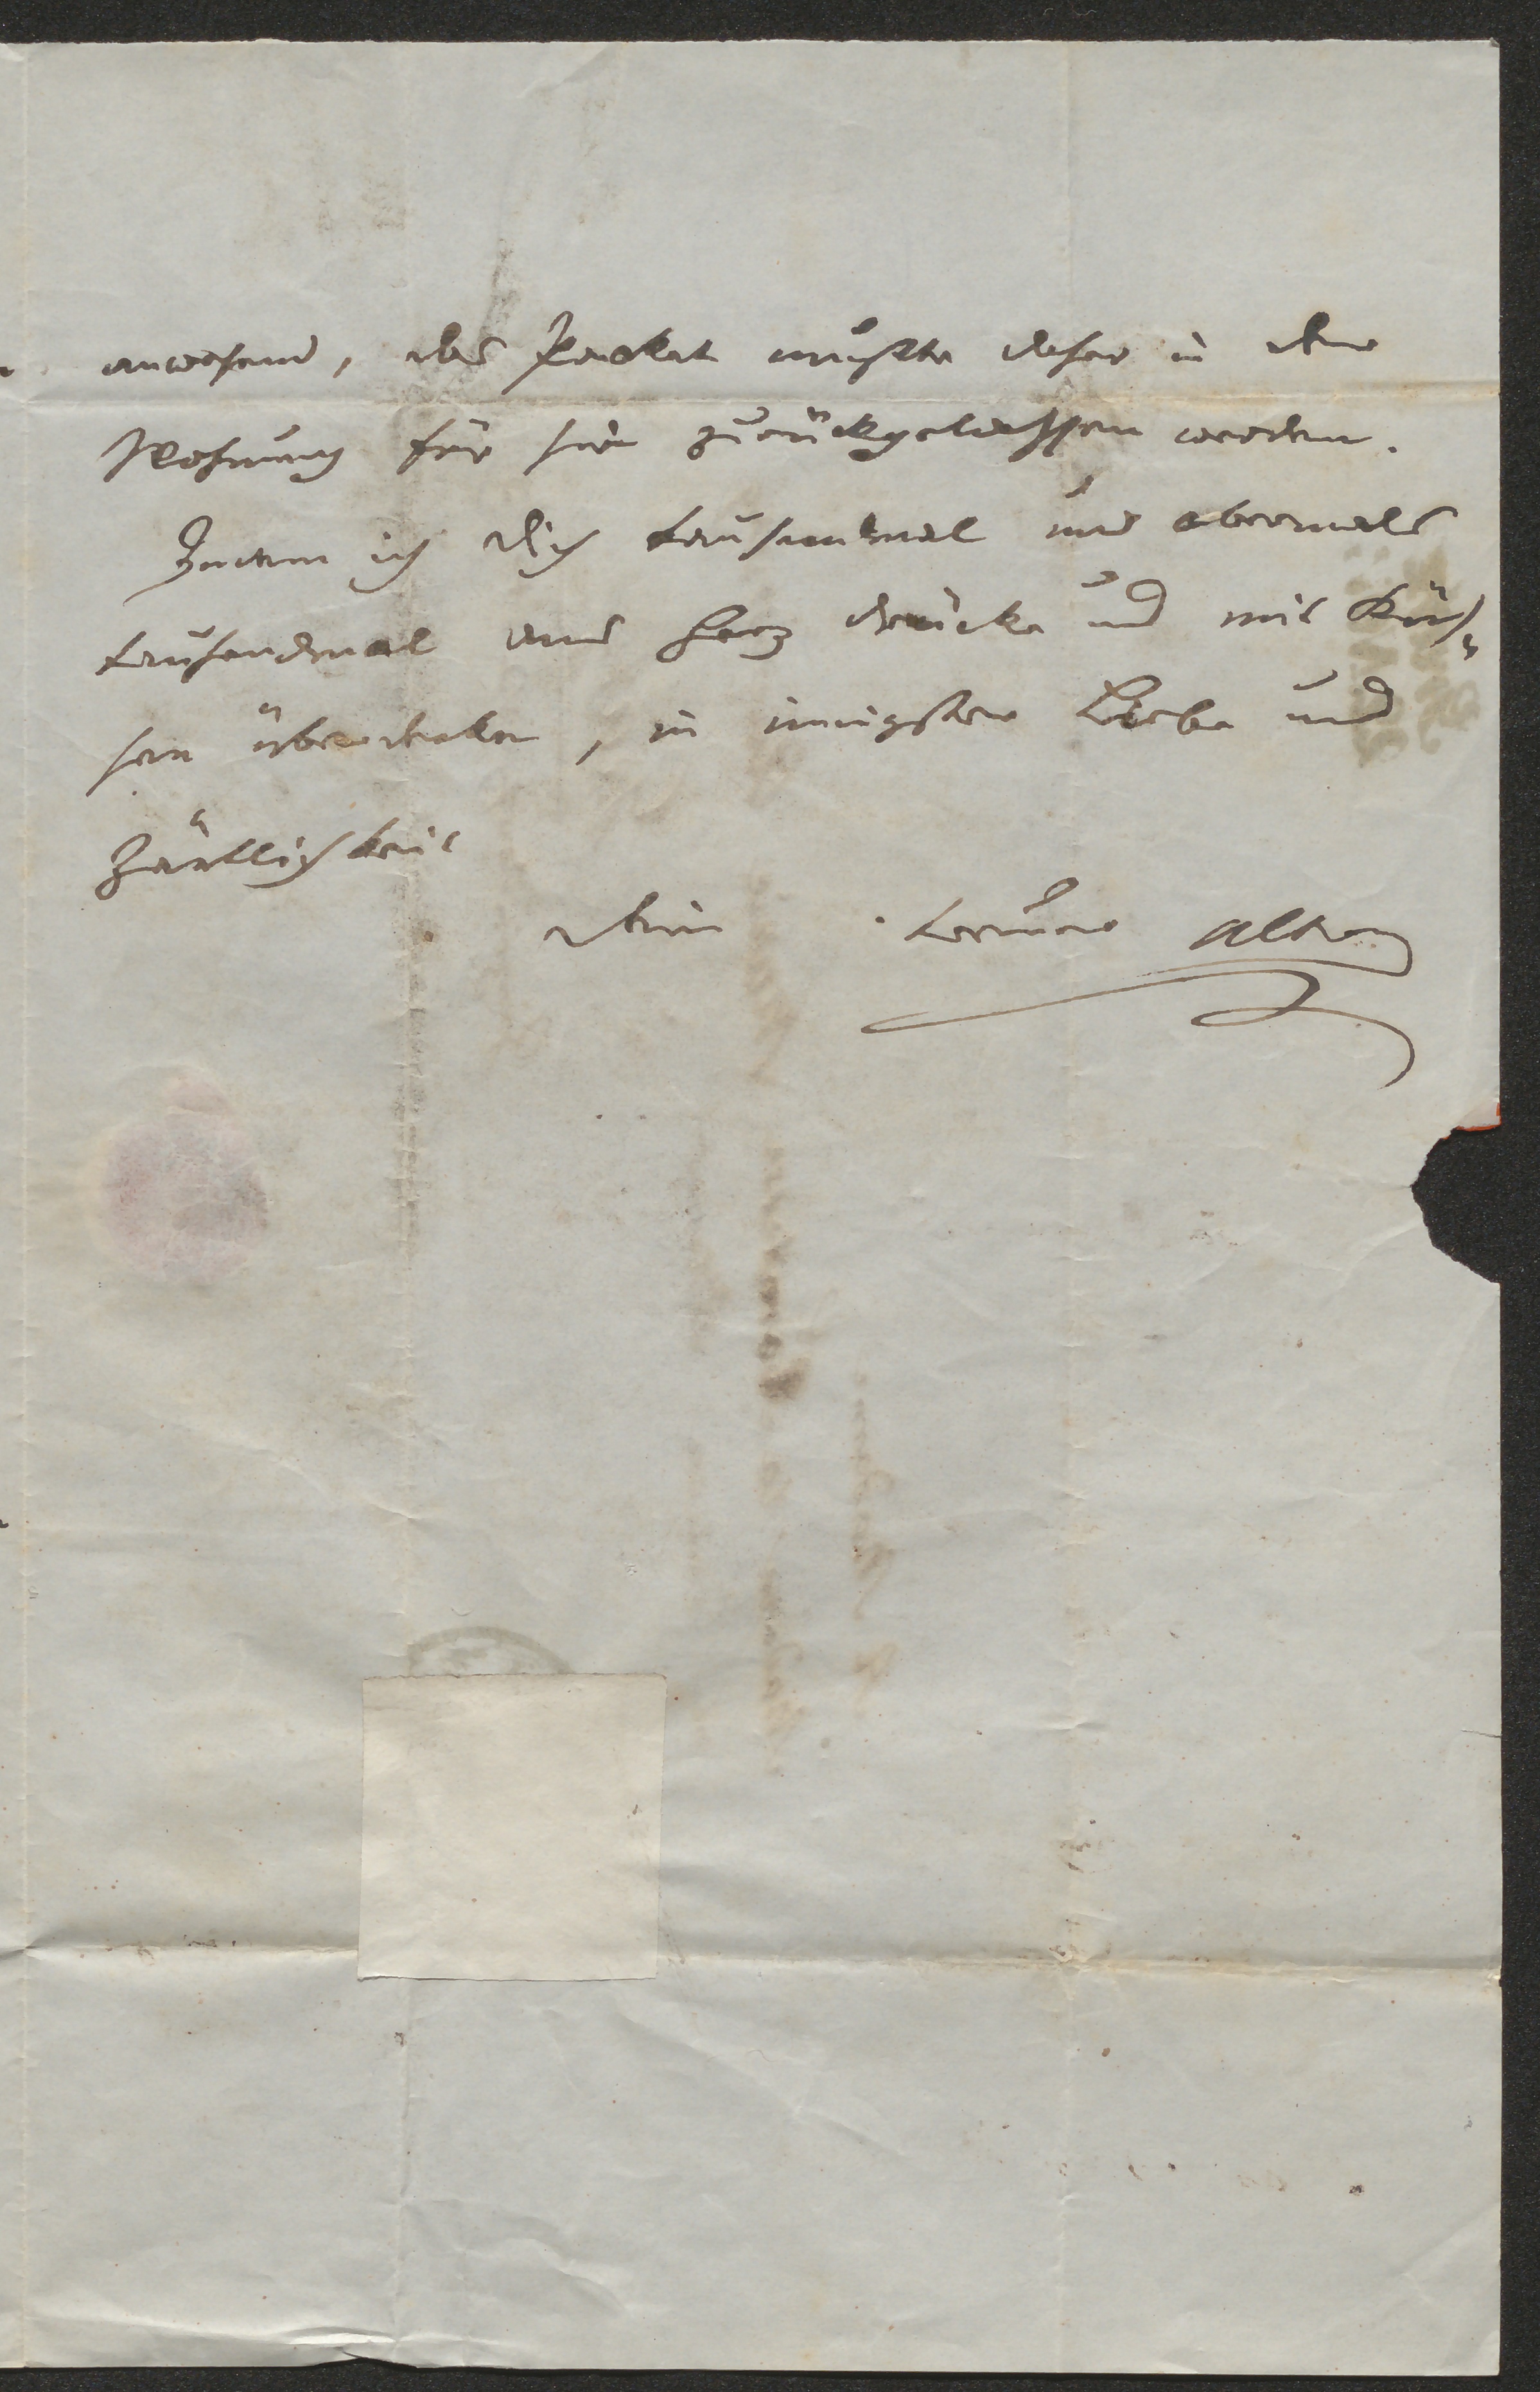 anwesend, das Packet mußte daher in der
Wohnung für sie zurückgelassen werden.
Indem ich dich tausendmal und abermals
tausendmal ans Herz drücke und mit Küs„
sen überdecke, in innigster Liebe und
Zärtlichkeit
dein treuer Alter